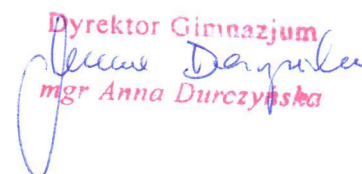 Dyrektor Gimnazjum
mgr Anna Durczyńska